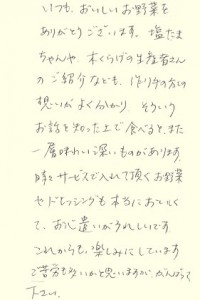 いつも、おいしいお野菜を
ありがとうございます。塩たま
ちゃんや、木くらげの生産者さん
のご紹介なども、作り手の方の
想いがよく分かり そういう
お話を知った上で食べると、また
一層味わい深いものがあります。
時々サービスで入れて頂くお野菜
やドレッシングも本当においしく
て、お心遣いがうれしいです。
これからも、楽しみにしています
ご苦労も多いかと思いますが がんばって
下さい。